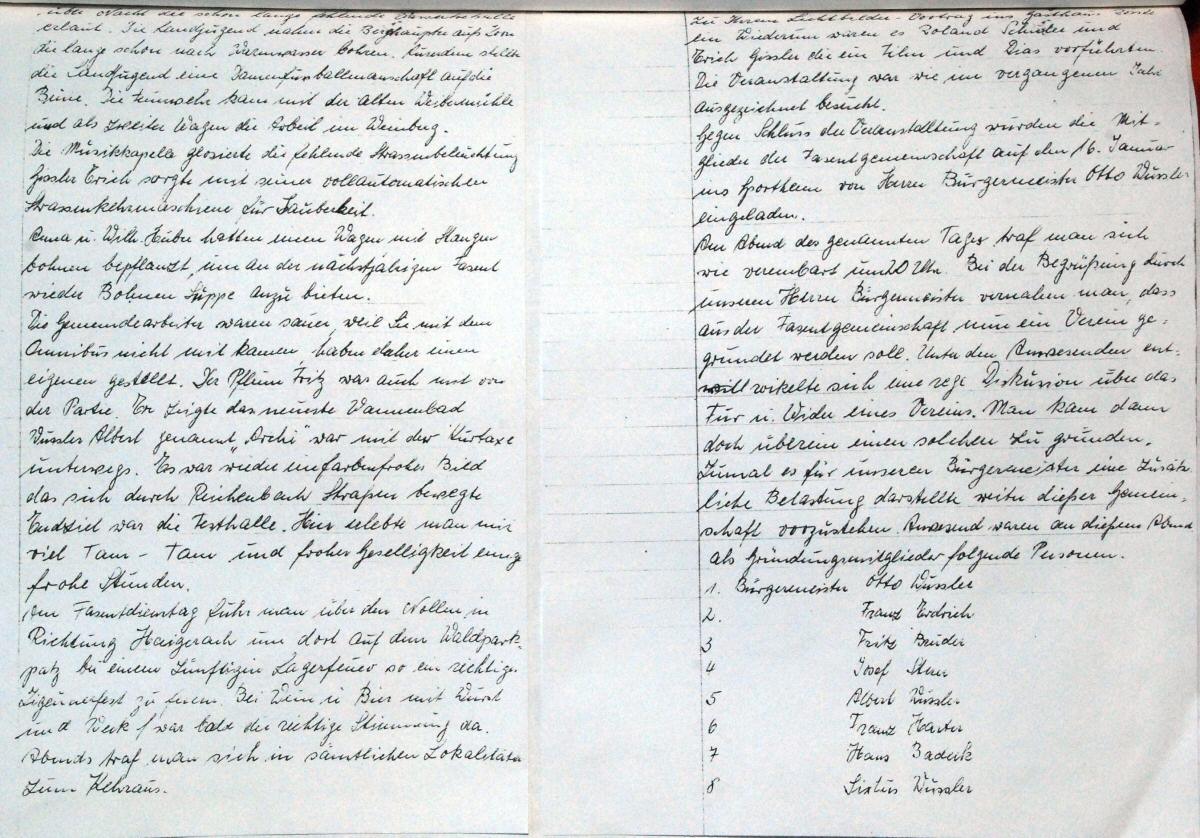 über Nacht die schon lange fehlende
erlaut. Die Landjugend nahm die Berghaupte aufs Korn
die lange schon nach Warmwasser bohren. Ausserdem stellte
die Landjugend eine Damenfussballmanschaft auf die
Beine. Die Feuerwehr kam mit der alten Weibermühle
und als zweiter Wagen die Arbeit im Weinberg.
Die Musikkapelle glosierte die fehlende Strassenbeleuchtung
Gissler Erich sorgte mit seiner vollautomatischen
Strassenkehrmaschiene für Sauberkeit.
Anna u. Wilh. Huber hatten einen Wagen mit Stangen
bohnen bepflanzt, um an der nächstjährigen Fasent
wieder Bohnen Suppe anzu bieten.
Die Gemeindearbeiter waren sauer, weil Sie mit dem
Omnibus nicht mit kamen, haben daher einen
eigenen gestellt. Der Pflum Fritz war auch mit von
der Partie. Er zeigte das neueste Wannenbad
Wussler Albert genannt "Archi" war mit der Kurtaxe
unterwegs. Es war wieder ein farbenfrohes Bild
das sich durch Reichenbach Strassen bewegte
Endziel war die Festhalle. Hier erlebte man mit
viel Tam - Tam und froher Geselligkeit einige
frohe Stunden.
Am Fasentdienstag fuhr man über den Nollen in
Richtung Haigerach um dort auf dem Waldpark-
patz bei einem zünftigin Lagerfeuer so ein richtiges
Zigeunerfest zu feiern. Bei Wein u Bier mit Wurst
und Weck / war bald die richtige Stimmung da.
Abends traf man sich in sämtlichen Lokalitäten
zum Kehraus.
zu Ihrem Lichtbilder-Vortrag ins Gasthaus
ein Wiederum waren es Roland Schüler und
Erich Gissler die ein Film und Dias vorführten.
Die Veranstaltung war wie im vergangenen Jahr
ausgezeichnet besucht.
Gegen Schluss der Veranstalltung wurden die Mit-
glieder der Fasentgemeinschaft auf den 16. Januar
ins Sportheim von Herrn Bürgermeister Otto Wussler
eingeladen.
Am Abend des genannten Tages traf man sich
wie vereinbart um 20 Uhr. Bei der Begrüßung durch
unseren Herrn Bürgermeister vernahm man, dass
aus der Fasentgemeinschaft nun ein Verein ge-
gründet werden soll. Unter den Anwesenden ent-
wikelte sich eine rege Diskusion über das
Für u. Wider eines Vereins. Man kam dann
doch überein einen solchen zu gründen.
Zumal es für unseren Bürgermeister eine zusätz-
liche Belastung darstellte weiter dießer Gemein-
schaft vorzustehen. Anwesend waren an dießem Abend
als Gründungsmitglieder folgende Personen.
1. Bürgermeister Otto Wussler
2. Franz Erdrich
3 Fritz Bruder
4 Josef Stern
5 Albert Wussler
6 Franz Harter
7 Hans Baderk
8 Sixtus Wussler